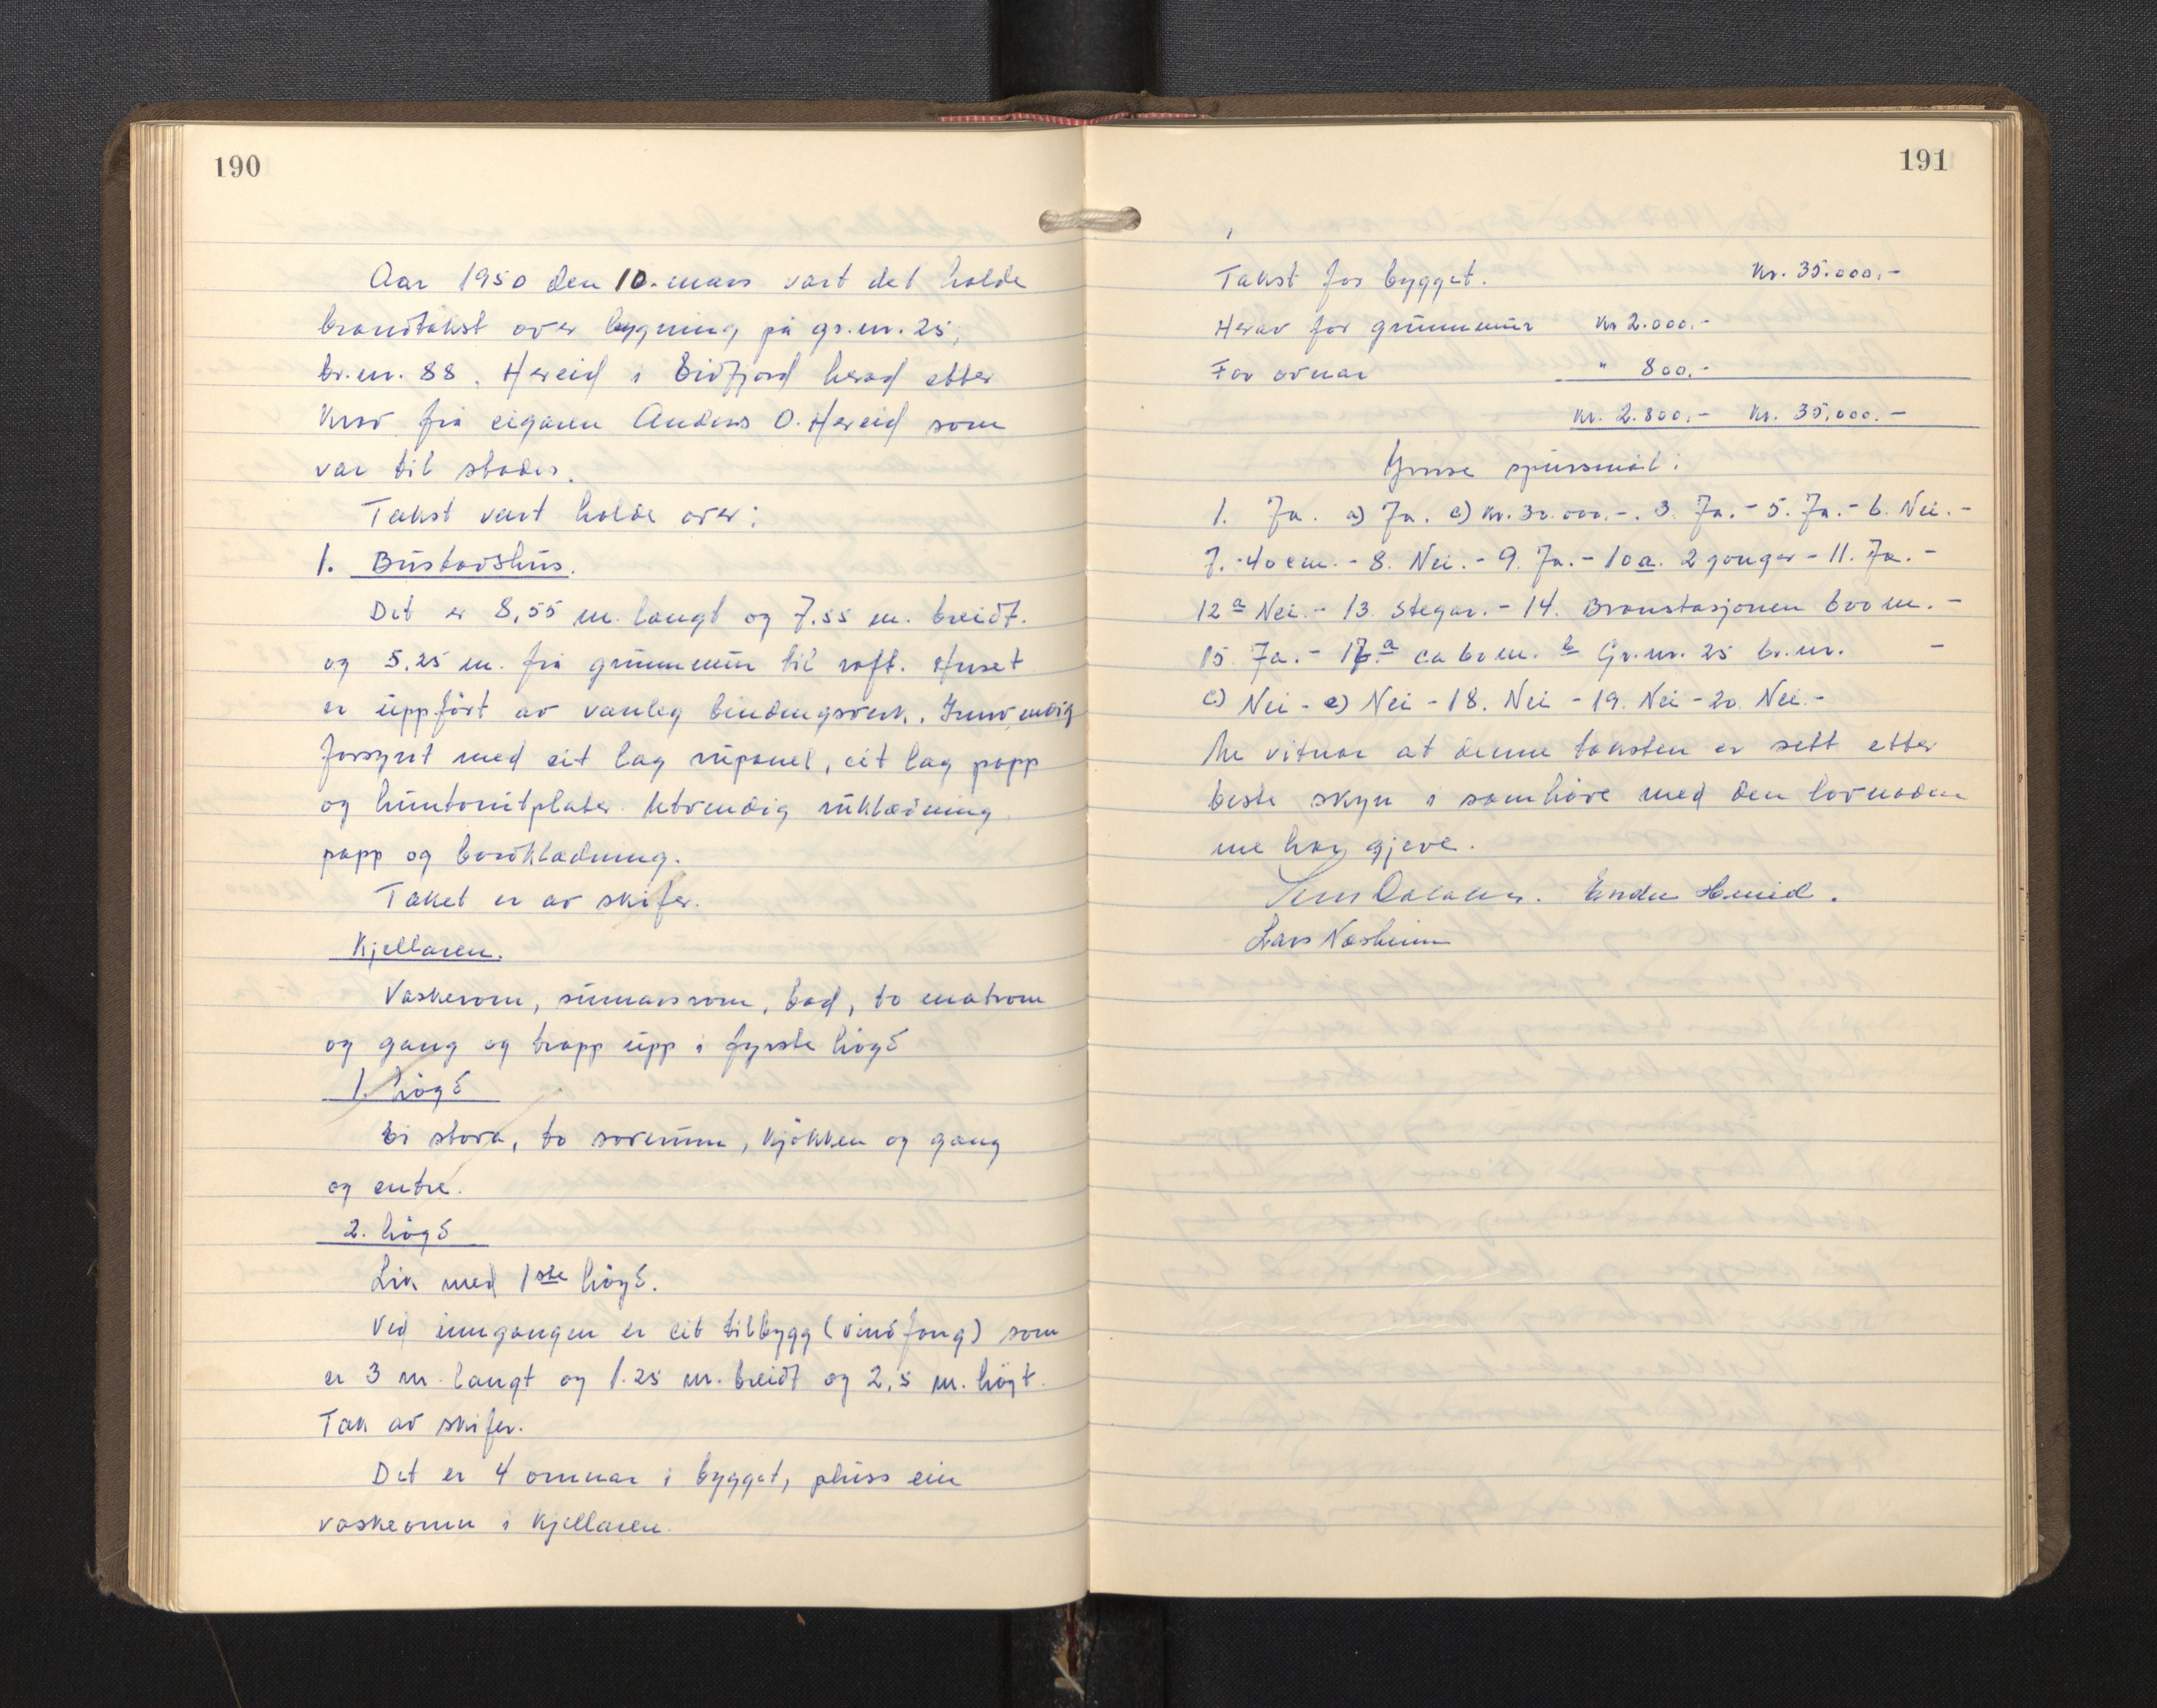 190
Aar 1950 den 10. mars vart det halde
brandtakst over bygning på gr.nr. 25,
br.nr. 88, Hereid i Eidfjord herad etter
krav frå eigaren Anders O. Hereid som
var til stades.
Takst vart halde over:
1. Bustadshus.
Det er 8,55 m. langt og 7.55 m. breidt.
og 5.25 m. frå grunnmur til raft. Huset
er uppført av vanleg bindingsverk. Innvendig
forsynt med eit lag rupanel, eit lag papp
og huntonitplater. Utvendig rukledning
papp og bordkledning.
Taket er av skifer.
Kjellaren.
Vaskerom, rom, bad, to matrom
og gang og trapp upp i fyrste høgd
1. høgd
Ei stova, to soverum, kjøkken og gang
og entre.
2. høgd
Lik med 1ste høgd.
Ved inngangen er eit tilbygg (vindfang) som
er 3 m. langt og 1.25 m. breidt og 2,5 m. høgt.
Tak av skifer.
Det er 4 omnar i bygget, pluss ein
vaskeomn i kjellaren.
191
Takst for bygget. Kr. 35.000.-
Herav for grunnmur Kr 2.000.-
For ovnar " 800.-
Kr. 2.800.- Kr. 35.000.-
Ymse spursmål:
1. Ja. a) Ja. c) Kr. 30.000.-. 3. Ja.- 5. Ja.- 6. Nei.-
7. -40 cm. - 8. Nei.- 9. Ja.- 10 a. 2 gonger - 11. Ja.-
12 a Nei.- 13. Stegar.- 14. Branstasjonen 600 m.-
15. Ja.- 17. a ca 60 m. b Gr.nr. 25 br.nr. -
c) Nei - e) Nei - 18. Nei - 19. Nei - 20. Nei.-
Me vitnar at denne taksten er sett etter
beste skyn i samhøve med den lovnaden
me har gjeve.
Endre Hereid.
Lars Næsheim